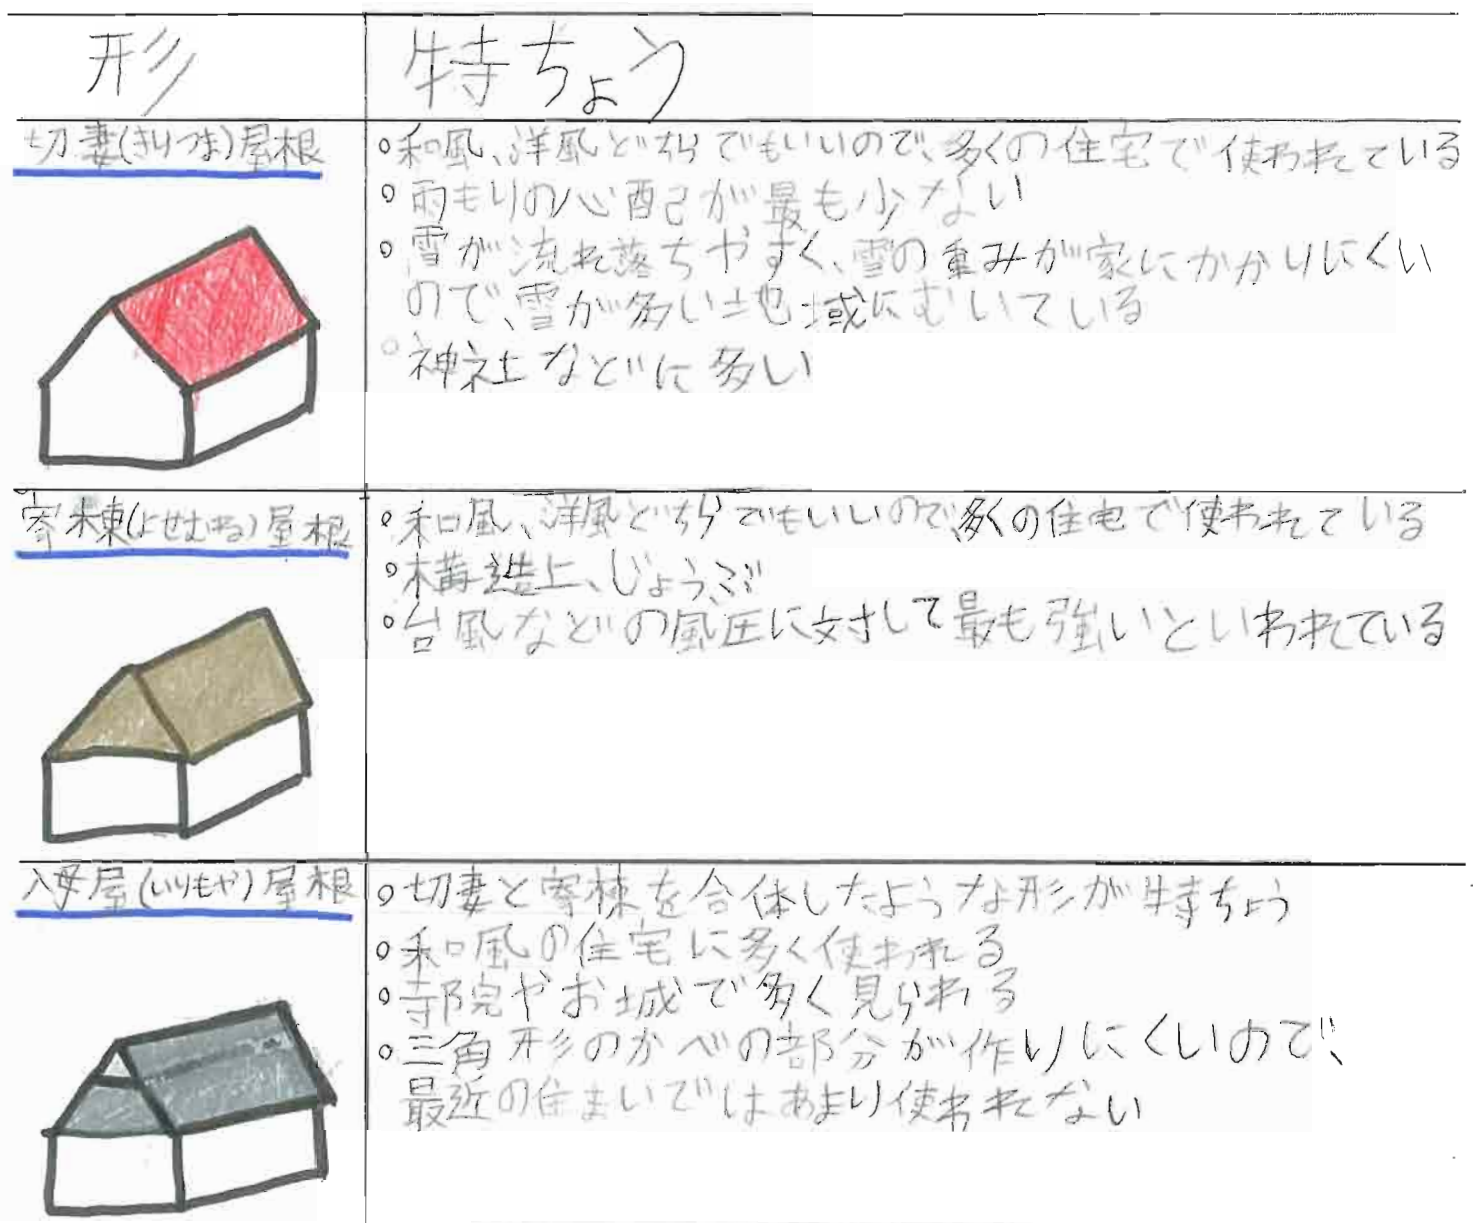 形
特ちょう
切妻(きりつま)屋根
○和風、洋風どちらでもいいので、多くの住宅で使われている
○雨もりの心配が最も少ない
○雪が流れ落ちやすく、雪の重みが家にかかりにくい
ので、雪が多い地域にむいている
○神社などに多い
寄棟(よせむね)屋根
○和風、洋風どちらでもいいので、多くの住宅で使われている
○構造上、じょうぶ
○台風などの風圧に対して最も強いといわれている
入母屋(いりもや)屋根
○切妻と寄棟を合体したような形が特ちょう
○和風の住宅に多く使われる
○寺院やお城で多く見られる
○三角形のかべの部分が作りにくいので、
最近の住まいではあまり使われてない